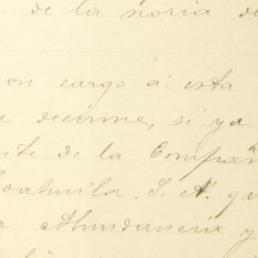 de la noria de
con cargo á esta
decirme, si ya
de la Compañ
Coahuila. S. A. qu
Abundancia y